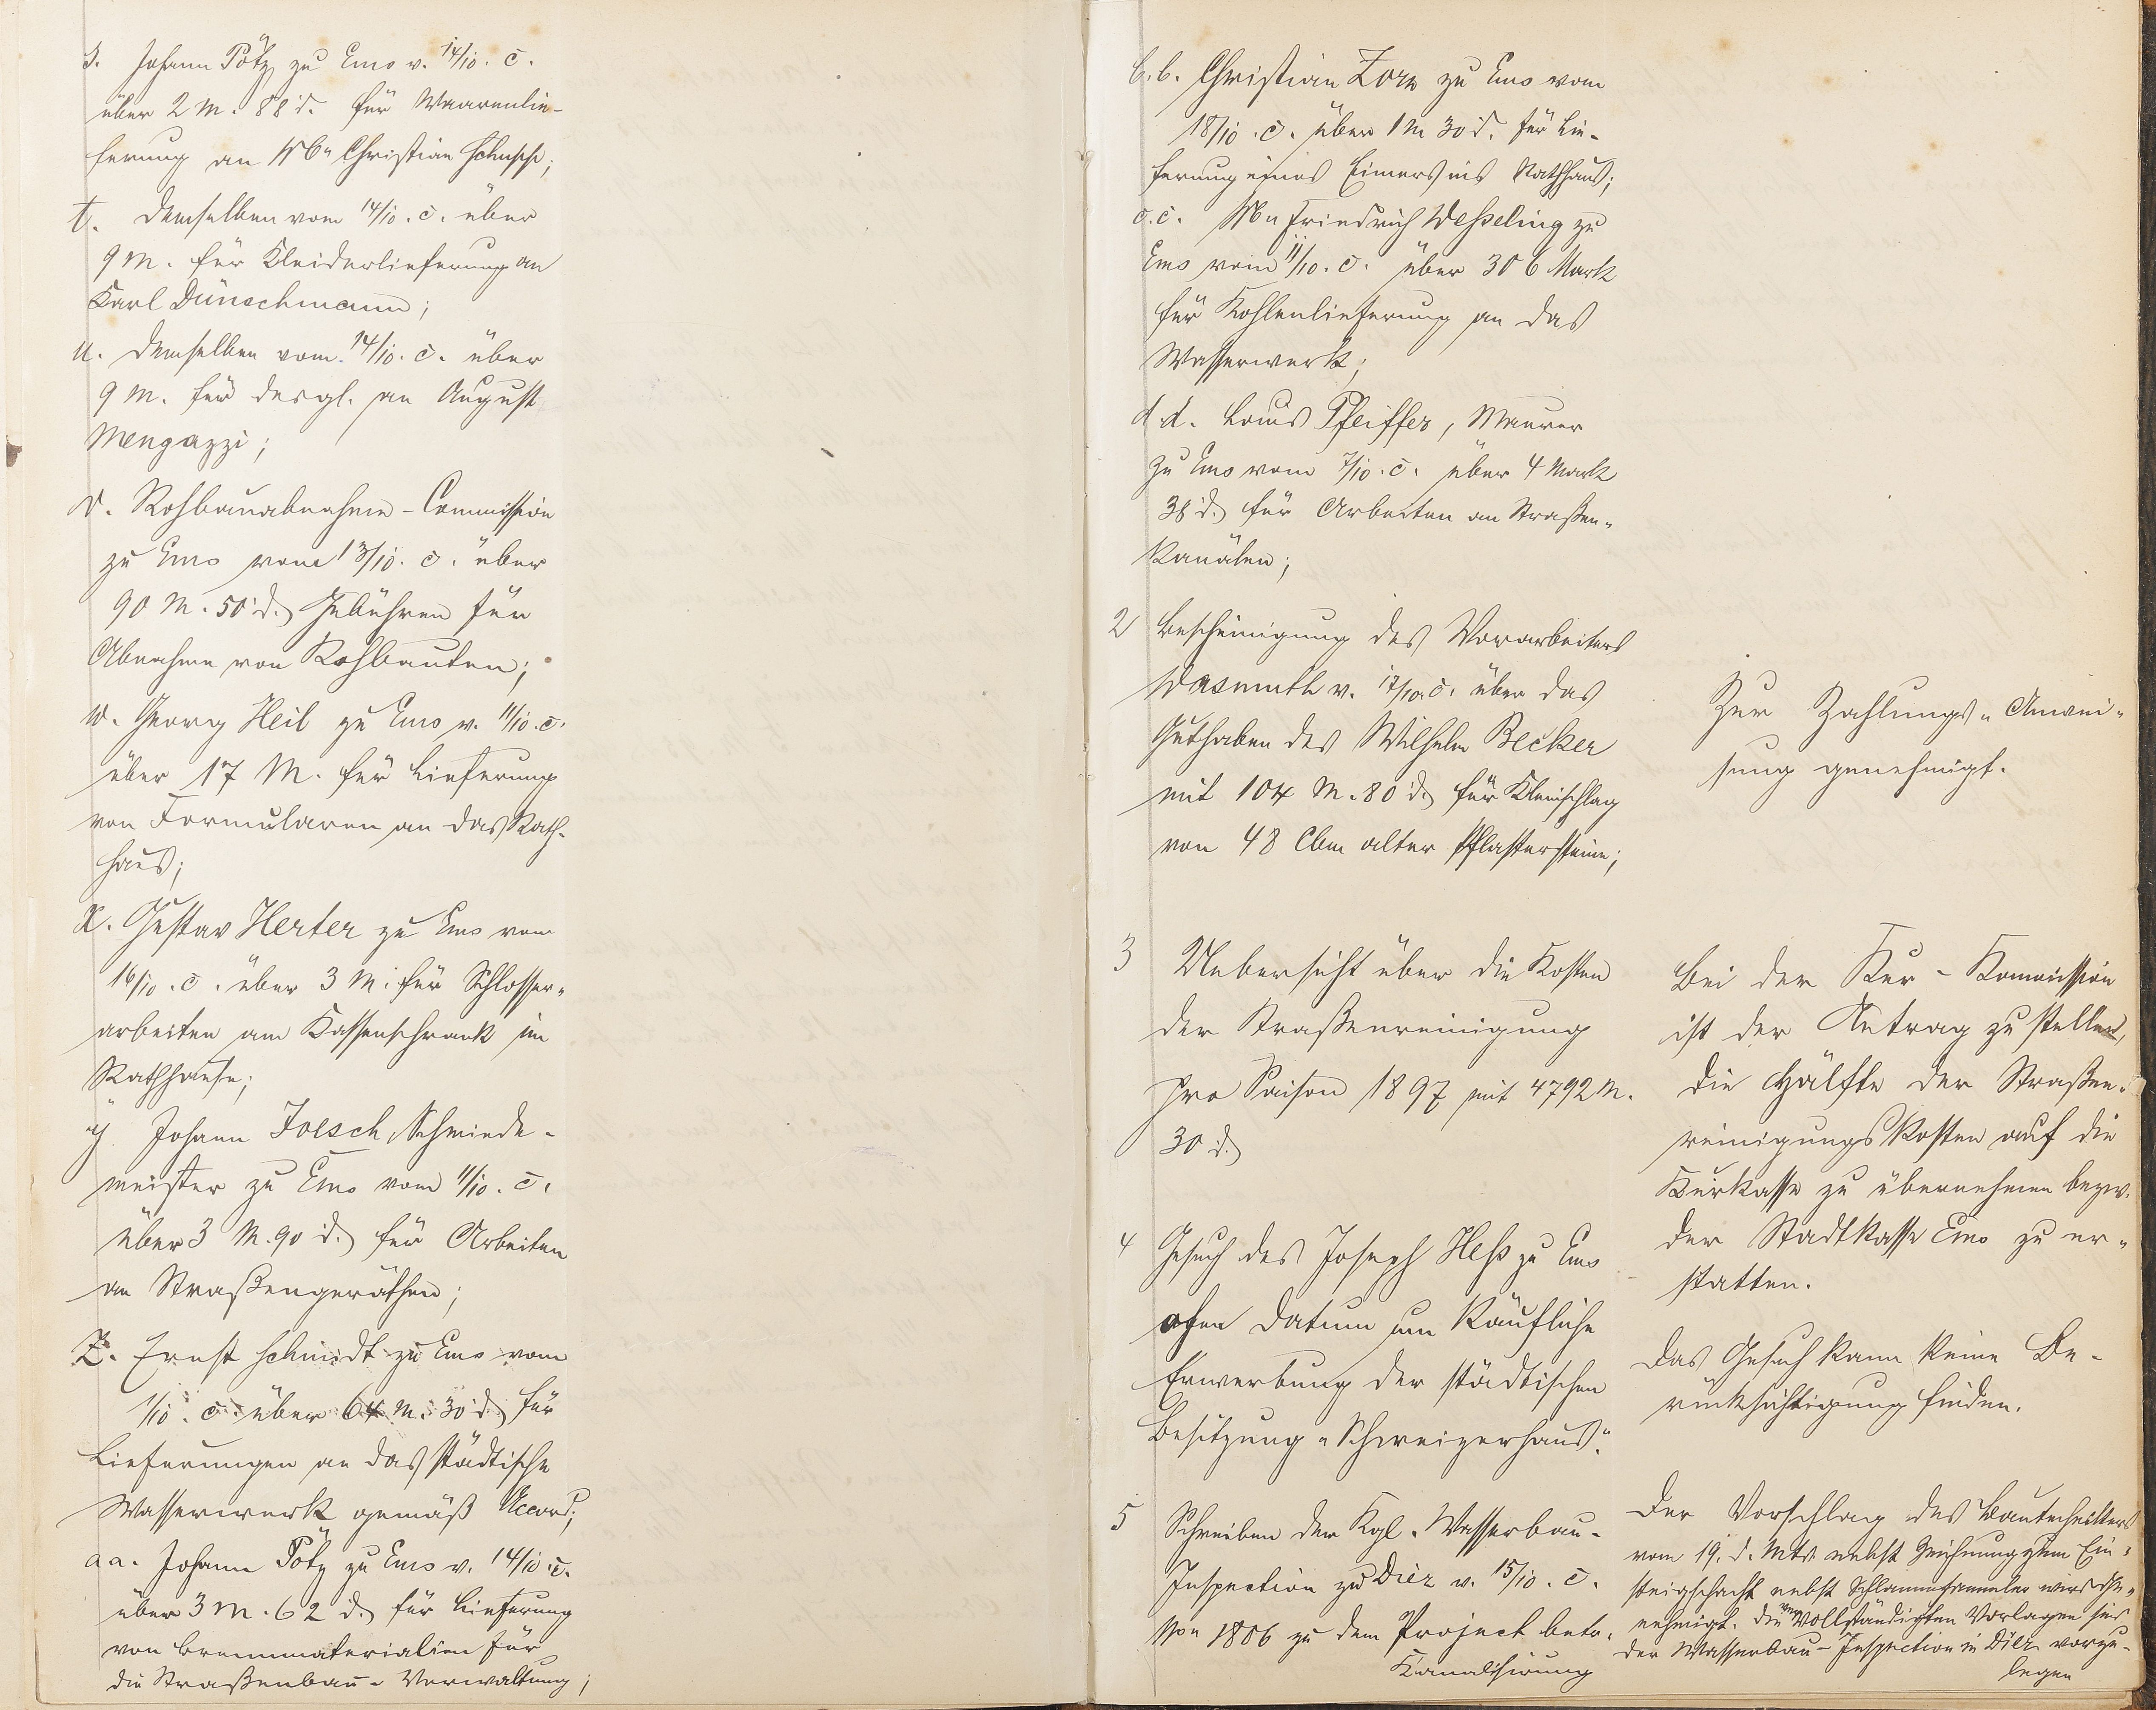 s. Johann Pötz zu Ems v. 14/10. c.
über 2 M. 88 d. für Waarenlie-
ferung an Wwe Christian Schupp;
t. demselben vom 14/10. c. über
9 M. für Kleiderlieferung an
Karl Dünschmann;
u. demselben vom 14/10. c. über
9 M. für desgl. an August
Mengazzi;
v. Rohbauabnahme-Commission
zu Ems vom 13/10. c. über
90 M. 50 d. Gebühren für
Abnahme von Rohbauten;
w. Georg Heil zu Ems v. 11/10. c.
über 17 M. für Lieferung
von Formularen an das Rath-
haus;
x. Gustav Herter zu Ems vom
16/10. c. über 3 M. für Schlosser-
arbeiten am Kassenschrank im
Rathhause;
y Johann Joesch, Schmiede-
meister zu Ems vom 11/10. c.
über 3 M. 90 d. für Arbeiten
an Straßengeräthen;
z. Ernst Schmidt zu Ems vom
1/10. c. über 64 M. 30 d. für
Lieferungen an das städtische
Wasserwerk gemäß Accord;
aa. Johann Pötz zu Ems v. 14/10. c.
über 3 M. 62 d. für Lieferung
von Brennmaterialien für
die Straßenbau-Verwaltung;
b.b. Christian Zorn zu Ems vom
18/10. c. über 1 M 30 d. für Lie-
ferung eines Eimers ins Rathhaus;
c.c. Wwe Friedrich Wesseling zu
Ems vom 11/10. c. über 306 Mark
für Kohlenlieferung an das
Wasserwerk;
d d. Louis Pfeiffer, Maurer
zu Ems vom 7/10. c. über 4 Mark
38 d. für Arbeiten an Straßen-
kanälen;
2 Bescheinigung des Vorarbeiters
Wasmuth v. 17/10. c. über das
Guthaben des Wilhelm Becker
mit 104 M. 80 d. für Kleinschlag
von 48 Cbm alter Pflastersteine;
Zur Zahlungs-Anwei-
sung genehmigt.
3 Uebersicht über die Kosten
der Straßenreinigung
pro Saison 1897 mit 4792 M.
30 d.
Bei der Kur-Kommission
ist der Antrag zu stellen,
die Hälfte der Straßen-
reinigungskosten auf die
Kurkasse zu übernehmen bezw.
der Stadtkasse Ems zu er-
statten.
4 Gesuch des Joseph Heß zu Ems
ohne Datum um käufliche
Erwerbung der städtischen
Besitzung "Schweizerhaus".
Das Gesuch kann keine Be-
rücksichtigung finden.
5 Schreiben der Kgl. Wasserbau-
Inspection zu Diez v. 15/10. c.
No 1806 zu dem Project betr.
Kanalisirung
Der Vorschlag des Bautechnikers
vom 19. d. Mts. nebst Zeichnung zum Ein-
steigschacht nebst Schlammsammler wird ge-
nehmigt. Die vervollständigten Vorlagen sind
der Wasserbau-Inspection in Diez vorzu-
legen